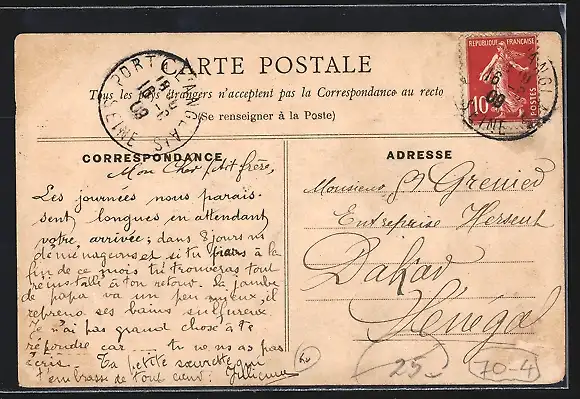 CARTE POSTALE
Tous les pays étrangers n'acceptent pas la Correspondance au recto
(Se renseigner à la Poste)
REPUBLIQUE FRANÇAISE
10
POSTES
PORT A L'ANGLAIS
SEINE
16
09
CORRESPONDANCE
ADRESSE
Mon Cher petit frère,
Les journées nous parais-
sent longues en attendant
votre arrivée; dans 8 jours ns
déménageons et si tu à la
fin de ce mois tu trouveras tout
réinstallé à ton retour. La jambe
de papa va un peu mieux, il
reprend ses bains sulfureux.
Je n'ai pas grand chose à te
répondre car ..... tu ne ns as pas
écris. Ta petite sœurette qui
t'embrasse de tout cœur: Julienne
Monsieur Grenier
Entreprise Hersent
Dakar
Sénégal
25
70-4